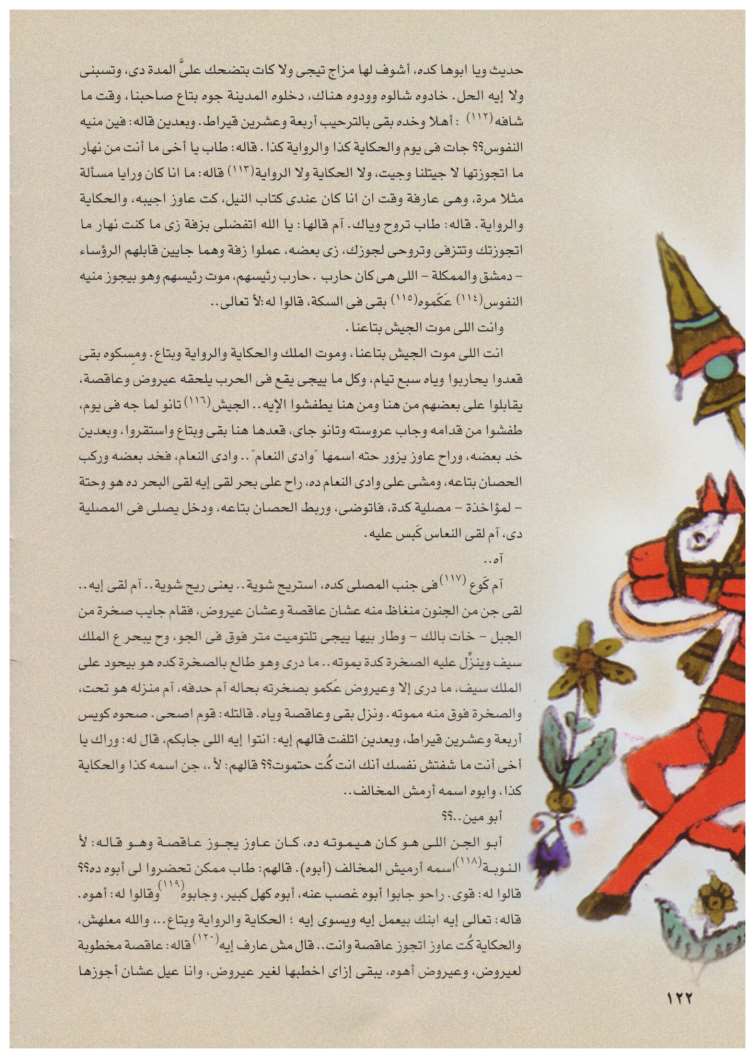 حديث ويا ابوها كده، أشوف لها مزاج تيجى ولا كات بتضحك علىَّ المدة دى، وتسبنى
ولا إيه الحل. خادوه شالوه وودوه هناك، دخلوه المدينة جوه بتاع صاحبنا، وقت ما
شافه (١١٢) : أهلا وخده بقى بالترحيب أربعة وعشرين قيراط. وبعدين قاله: فين منيه
النفوس؟؟ جات فى يوم والحكاية كذا والرواية كذا. قاله: طاب يا أخى ما أنت من نهار
ما اتجوزتها لا جيتلنا وجيت، ولا الحكاية ولا الرواية(١١٣) قاله: ما انا كان ورايا مسألة
مثلا مرة، وهى عارفة وقت ان انا كان عندى كتاب النيل، كت عاوز اجيبه، والحكاية
والرواية. قاله: طاب تروح وياك. آم قالها: يا الله اتفضلى بزفة زى ما كنت نهار ما
اتجوزتك وتتزفى وتروحى لجوزك، زى بعضه، عملوا زفة وهما جايين قابلهم الرؤساء
– دمشق والممكلة – اللى هى كان حارب . حارب رئيسهم، موت رئيسهم وهو بيجوز منيه
النفوس(١١٤) عَكَموه(١١٥) بقى فى السكة، قالوا له :لأ تعالى..
وانت اللى موت الجيش بتاعنا.
انت اللى موت الجيش بتاعنا، وموت الملك والحكاية والرواية وبتاع. ومِسكوه بقى
قعدوا يحاربوا وياه سبع تيام، وكل ما ييجى يقع فى الحرب يلحقه عيروض وعاقصة،
يقابلوا على بعضهم من هنا ومن هنا يطفشوا الإيه.. الجيش(١١٦) تانو لما جه فى يوم،
طفشوا من قدامه وجاب عروسته وتانو جاى، قعدها هنا بقى وبتاع واستقروا، وبعدين
خد بعضه، وراح عاوز يزور حته اسمها "وادى النعام".. وادى النعام، فخد بعضه وركب
الحصان بتاعه، ومشى على وادى النعام ده، راح على بحر لقى إيه لقى البحر ده هو وحتة
– لمؤاخذة – مصلية كدة، فاتوضى، وربط الحصان بتاعه، ودخل يصلى فى المصلية
دى، آم لقى النعاس كَبس عليه.
آه..
آم كَوع (١١٧) فى جنب المصلى كده، استريح شوية.. يعنى ريح شوية.. آم لقى إيه..
لقى جن من الجنون منغاظ منه عشان عاقصة وعشان عيروض، فقام جايب صخرة من
الجبل – خات بالك – وطار بيها ييجى تلتوميت متر فوق فى الجو، وح يبحر ع الملك
سيف وينزِّل عليه الصخرة كدة يموته.. ما درى وهو طالع بالصخرة كده هو بيحود على
الملك سيف، ما درى إلا وعيروض عَكمو بصخرته بحاله آم حدفه، آم منزله هو تحت،
والصخرة فوق منه مموته. ونزل بقى وعاقصة وياه. قالتله: قوم اصحى. صحوه كويس
أربعة وعشرين قيراط، وبعدين اتلفت قالهم إيه: انتوا إيه اللى جابكم، قال له: وراك يا
أخى أنت ما شفتش نفسك أنك انت كُت حتموت؟؟ قالهم: لأ .، جن اسمه كذا والحكاية
كذا، وابوه اسمه أرمش المخالف..
أبو مين..؟؟
أبو الجن اللى هو كان هيموته ده، كان عاوز يجوز عاقصة وهو قاله: لأ
النوبة(١١٨)اسمه أرميش المخالف (أبوه). قالهم: طاب ممكن تحضروا لى أبوه ده؟؟
قالوا له: قوى. راحو جابوا أبوه غصب عنه، أبوه كهل كبير، وجابوه(١١٩) وقالوا له: أهوه.
قاله: تعالى إيه ابنك بيعمل إيه ويسوى إيه ؛ الحكاية والرواية وبتاع ..، والله معلهش،
والحكاية كُت عاوز اتجوز عاقصة وانت.. قال مش عارف إيه(١٢٠) قاله: عاقصة مخطوبة
لعيروض، وعيروض أهوه، يبقى إزاى اخطبها لغير عيروض، وانا عيل عشان أجوزها
١٢٢